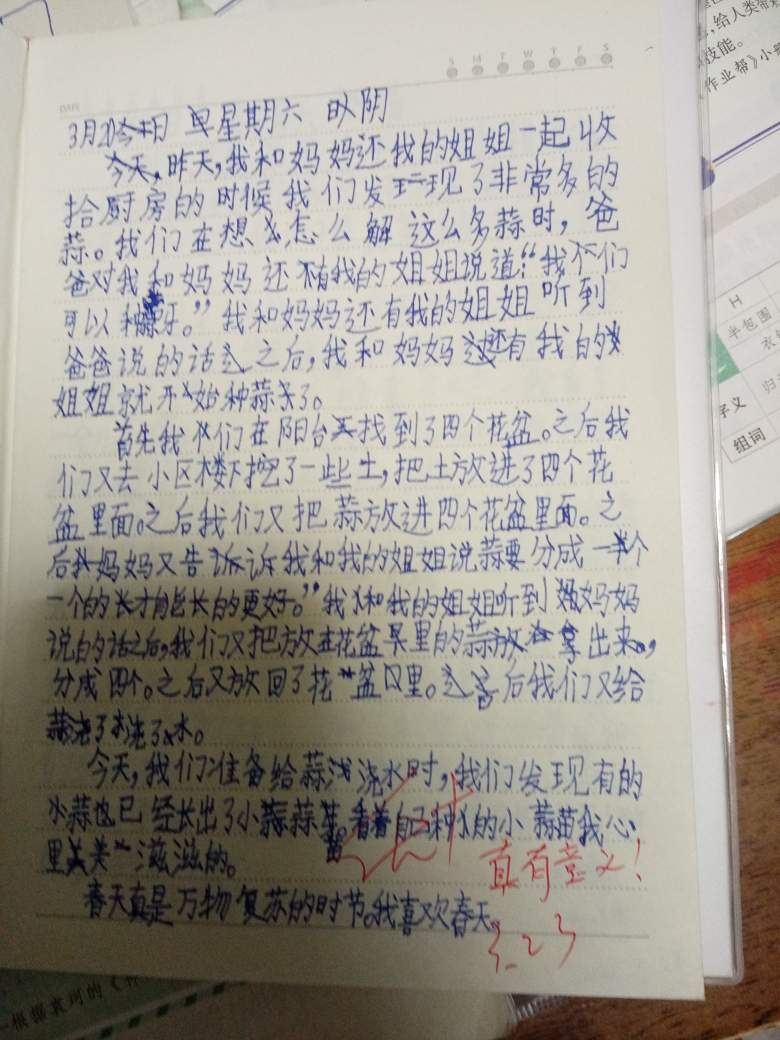 S M T W T F S
DATE
3月2日 星期六 阴
今天,昨天,我和妈妈还我的姐姐一起收
拾厨房的时候我们发现了非常多的
蒜。我们在想怎么解这么多蒜时,爸
爸对我和妈妈还有我的姐姐说道:“我们
可以种蒜呀。”我和妈妈还有我的姐姐听到
爸爸说的话之后,我和妈妈还有我的
姐姐就开始种蒜了。
首先我们在阳台找到了四个花盆。之后我
们又去小区楼下挖了一些土,把土放进了四个花
盆里面。之后我们又把蒜放进四个花盆里面。之
后妈妈又告诉我和我的姐姐说蒜要分成一个
一个的长才能长的更好。”我和我的姐姐听到妈妈
说的话之后,我们又把放在花盆里的蒜拿出来,
分成四个。之后又放回了花盆里。之后我们又给
蒜浇了水。
今天,我们准备给蒜浇水时,我们发现有的
蒜也已经长出了小蒜苗。看着自己种的小蒜苗我心
里美滋滋的。
春天真是万物复苏的时节。我喜欢春天。
真有意义!
3.23
给人类带
技能。
作业帮》小
H
半包围
字义
组词
根据袁珂的《